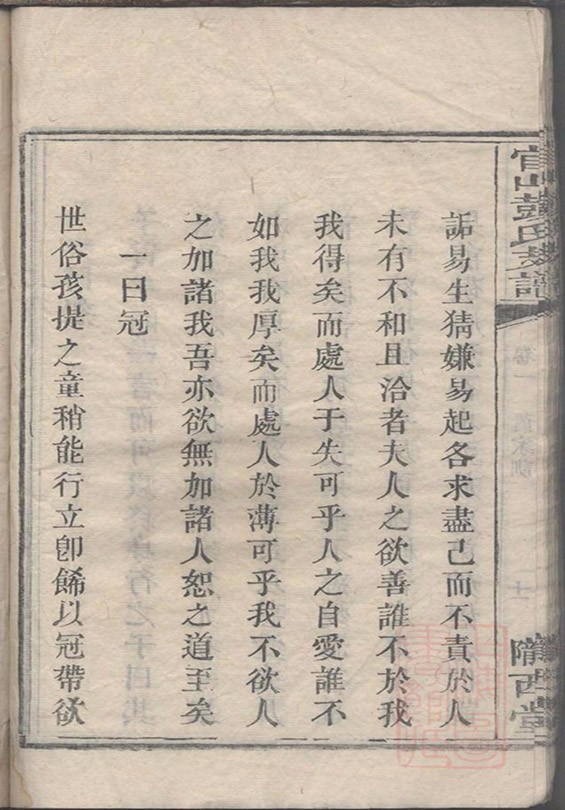 官山彭氏支譜
卷一
隴西堂
詬易生猜嫌易起各求盡己而不責於人
未有不和且洽者夫人之欲善誰不於我
我得矣而處人于失可乎人之自愛誰不
如我我厚矣而處人於薄可乎我不欲人
之加諸我吾亦欲無加諸人恕之道至矣
一曰冠
世俗孩提之童稍能行立卽餙以冠帶欲